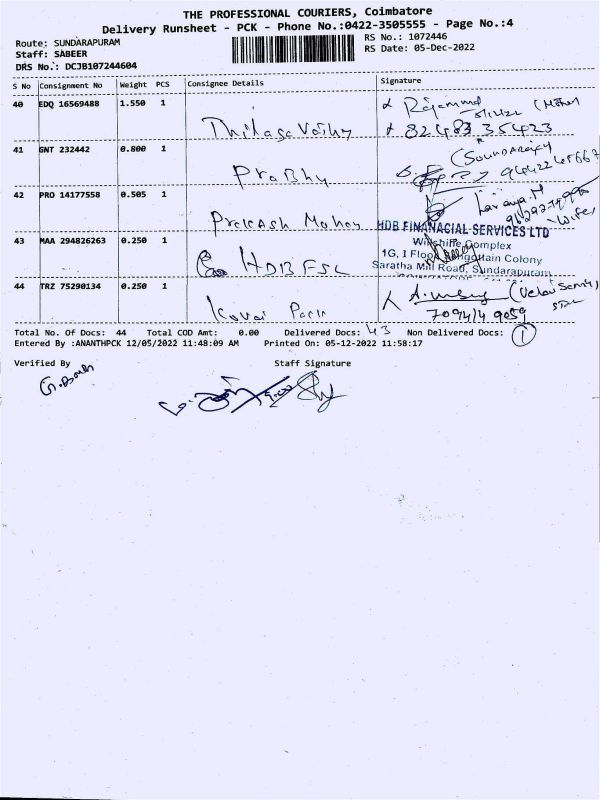 THE PROFESSIONAL COURIERS, Coimbatore
Delivery Runsheet - PCK - Phone No.:0422-3505555 - Page No.:4
Route: SUNDARAPURAM
RS No.: 1072446
Staff: SABEER
RS Date: 05-Dec-2022
DRS No.: DCJB107244604
S No Consignment No Weight PCS Consignee Details Signature
40 EDQ 16569488 1.550 1
Thilaga Vathy
82483 35423
41 GNT 232442 0.800 1
Prabhu
42 PRO 14177558 0.505 1
Prakash Mohan
HDB FINANACIAL SERVICES LTD
43 MAA 294826263 0.250 1
HDB FSL
Complex
1G, 1 Floor Colony
Saratha Mill Road, Sundarapuram
44 TRZ 75290134 0.250 1
Kovai Park
Total No. Of Docs: 44 Total COD Amt: 0.00 Delivered Docs: 43 Non Delivered Docs: 1
Entered By :ANANTHPCK 12/05/2022 11:48:09 AM Printed On: 05-12-2022 11:58:17
Verified By Staff Signature